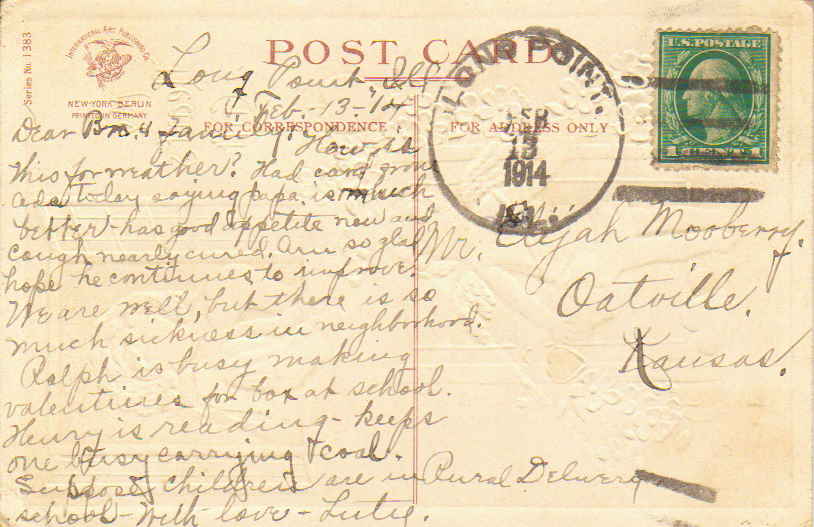 Series No. 1383
International Art Publishing Co.
NEW-YORK BERLIN
PRINTED IN GERMANY
POST CARD
FOR CORRESPONDENCE
FOR ADDRESS ONLY
Long Point, Ill
Feb. -13-'14
Dear Bro. & family:
How is
this for weather? Had card from
Ada today saying papa is much
better - has good appetite now and
cough nearly cured. Am so glad
hope he continues to improve.
We are well, but there is so
much sickness in neighborhood.
Ralph is busy making
valentines for box at school.
Henry is reading - keeps
one busy carrying coal.
Suppose children are in
school - With love -
LONG POINT,
FEB
13
1914
ILL.
U.S. POSTAGE
1 CENT 1
Mr. Elijah Mooberry,
Oatville,
Kansas.
Rural Delivery